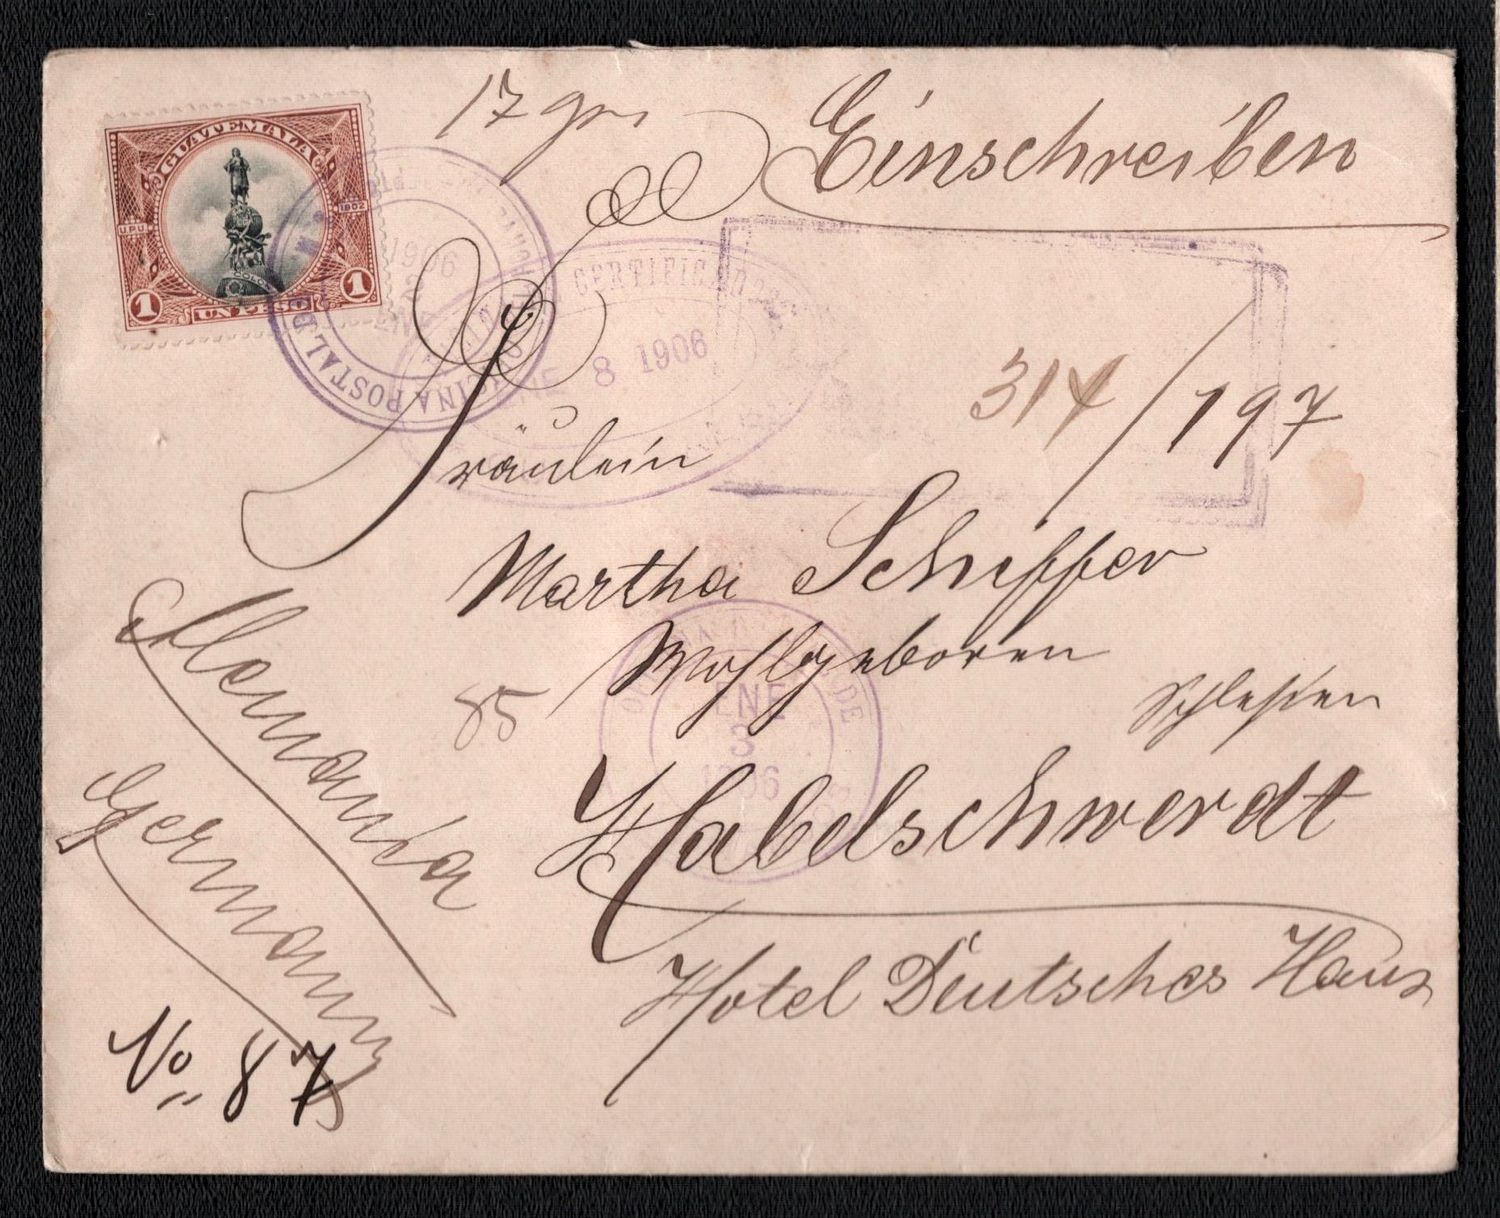 17 grs
Einschreiben
GUATEMALA
U.P.U. 1902
COLON
1 UN PESO 1
OFICINA POSTAL DE
1906
ENE
CERTIFICADO
ENE 8 1906
314/197
Fräulein
Martha Schiffer
Wohlgeboren
85
Schlesien
DE
ENE
3
1906
Habelschwerdt
Hotel Deutsches Haus
Alemania
Germany
No. 87